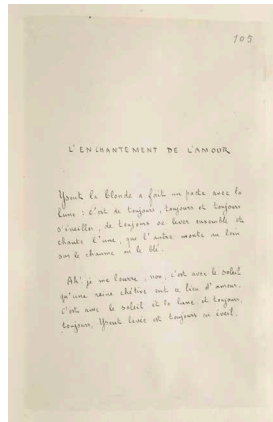 103
L'ENCHANTEMENT DE L'AMOUR
Yseut la blonde a fait un pacte avec la
lune : c'est de toujours, toujours et toujours
s'éveiller, de toujours se lever ensemble et
chante l'une, que l'autre monte au loin
sur le chaume ou le blé.
Ah! je me leurre, non, c'est avec le soleil
qu'une reine chétive eut ce lieu d'amour,
c'est avec le soleil et la lune et toujours,
toujours, Yseut levée est toujours en éveil.